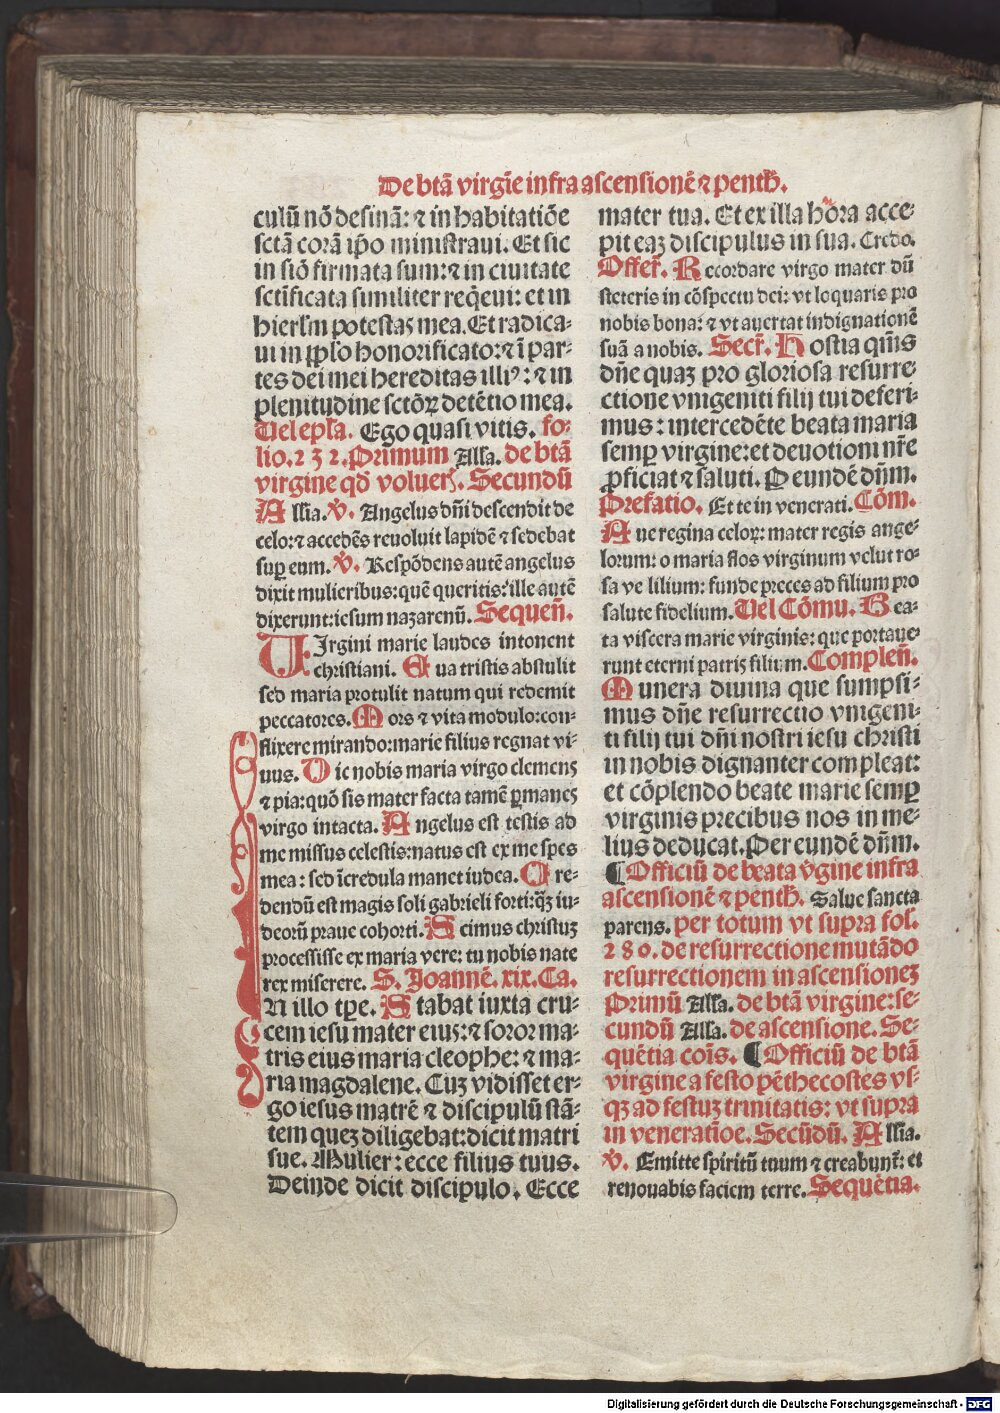 De btã virgīe infra ascensionē ⁊ penth.
culū nō desinã: ⁊ in habitatiōe
sctã corã ip̄o ministraui. Et sic
in siō firmata sum: ⁊ in ciuitate
sctīficata similiter req̄eui: et in
hierl̄m potestas mea. Et radica-
ui in pp̄lo honorificato: ⁊ ī par-
tes dei mei hereditas illiꝰ: ⁊ in
plenitudine sctōꝝ detētio mea.
Uel epl̄a. Ego quasi vitis. fo-
lio. 2 3 2. Primum Alla. de btã
virgine qđ volueř. Secundū
Allia. V̄. Angelus dn̄i descendit de
celo: ⁊ accedēs reuoluit lapidē ⁊ sedebat
sup̱ eum. V̄. Respōdens autē angelus
dixit mulieribus: quē queritis: ille autē
dixerunt: iesum nazarenū. Sequeñ.
UIrgini marie laudes intonent
christiani. Eua tristis abstulit
sed maria protulit natum qui redemit
peccatores. Mors ⁊ vita modulo: con-
flixere mirando: marie filius regnat vi-
uus. Dic nobis maria virgo clemens
⁊ pia: quō sis mater facta tamē ꝑmanes
virgo intacta. Angelus est testis ad
me missus celestis: natus est ex me spes
mea: sed īcredula manet iudea. Cre-
dendū est magis soli gabrieli forti: qꝫ iu-
deorū praue cohorti. Scimus christuꝫ
processisse ex maria vere: tu nobis nate
rex miserere. S. Joannē. xix. Ca.
IN illo tp̄e. Stabat iuxta cru-
cem iesu mater eius: ⁊ soror ma-
tris eius maria cleophe: ⁊ ma-
ria magdalene. Cuꝫ vidisset er-
go iesus matrē ⁊ discipulū stã-
tem queꝫ diligebat: dicit matri
sue. Mulier: ecce filius tuus.
Deinde dicit discipulo. Ecce
mater tua. Et ex illa hora acce-
pit eaꝫ discipulus in sua. Credo.
Offeř. Recordare virgo mater dū
steteris in cōspectu dei: vt loquaris pro
nobis bona: ⁊ vt auertat indignationē
suã a nobis. Secř. Hostia qm̄s
dn̄e quaꝫ pro gloriosa resurre
ctione vnigeniti filij tui deferi-
mus: intercedēte beata maria
semp̱ virgine: et deuotioni nr̄e
ꝓficiat ⁊ saluti. Per eundē dn̄m.
Prefatio. Et te in venerati. Cōm.
Aue regina celoꝝ: mater regis ange-
lorum: o maria flos virginum velut ro-
sa ve lilium: funde preces ad filium pro
salute fidelium. Uel Cōmu. Bea-
ta viscera marie virginis: que portaue-
runt eterni patris filium. Compleñ.
Munera diuina que sumpsi-
mus dn̄e resurrectio vnigeni-
ti filij tui dn̄i nostri iesu christi
in nobis dignanter compleat:
et cōplendo beate marie semp̱
virginis precibus nos in me-
lius deducat. Per eundē dn̄m.
¶ Officiū de beata v̄gine infra
ascensionē ⁊ penth. Salue sancta
parens. per totum vt supra fol.
2 8 0. de resurrectione mutãdo
resurrectionem in ascensioneꝫ
Primū Alla. de btã virgine: se-
cundū Alla. de ascensione. Se-
quētia cōis. ¶ Officiū de btã
virgine a festo pēthecostes vs-
qꝫ ad festuꝫ trinitatis: vt supra
in veneratiōe. Secūdū. Allia.
V̄. Emitte spiritū tuum ⁊ creabunť: et
renouabis faciem terre. Sequētia.
Digitalisierung gefördert durch die Deutsche Forschungsgemeinschaft - DFG